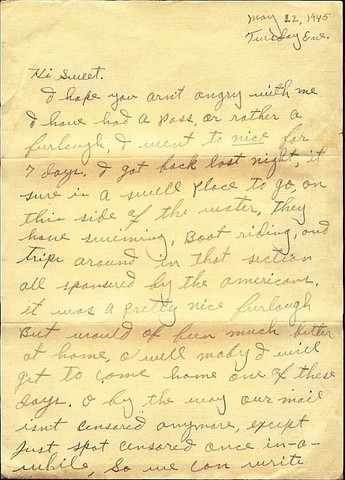 May 22, 1945
Tuesday Eve.
Hi Sweet.
I hope you arn't angry with me
I have had a Pass, or rather a
furlough, I went to nice for
7 days. I got back last night, it
sure is a swell Place to go, on
this side of the water, they
have swiming, Boat riding, and
trips around in that section
all sponsered by the americans.
it was a pretty nice furlough
But would of been much better
at home, o well maby I will
get to come home one of these
days. O by the way our mail
isnt censored anymore, except
Just spot censored once in-a-
while, So we can write